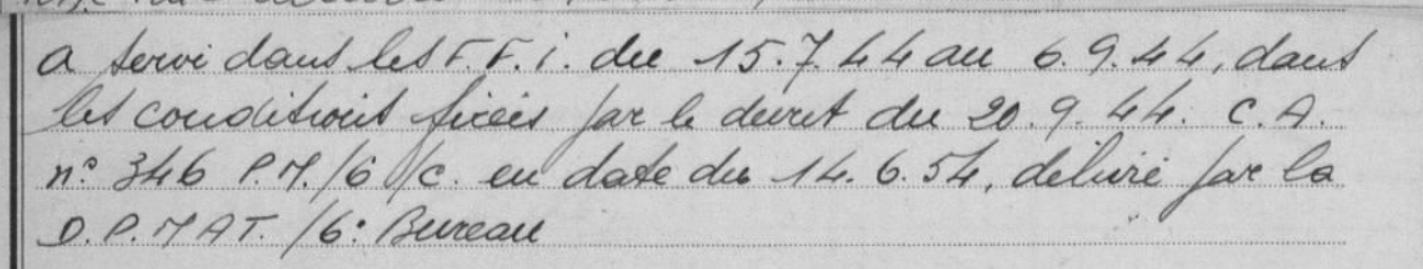 a servi dans les F.F.i. du 15.7.44 au 6.9.44, dans
les conditions fixées par le décret du 20.9.44. C.A.
n° 346 P.M./6 B/C. en date du 14.6.54, délivré par la
D.P.M AT. /6° Bureau